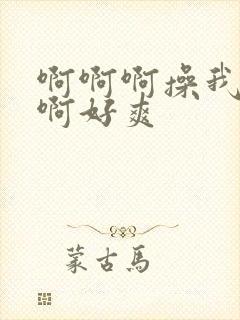 啊啊啊操我
啊好爽
蒙古馬